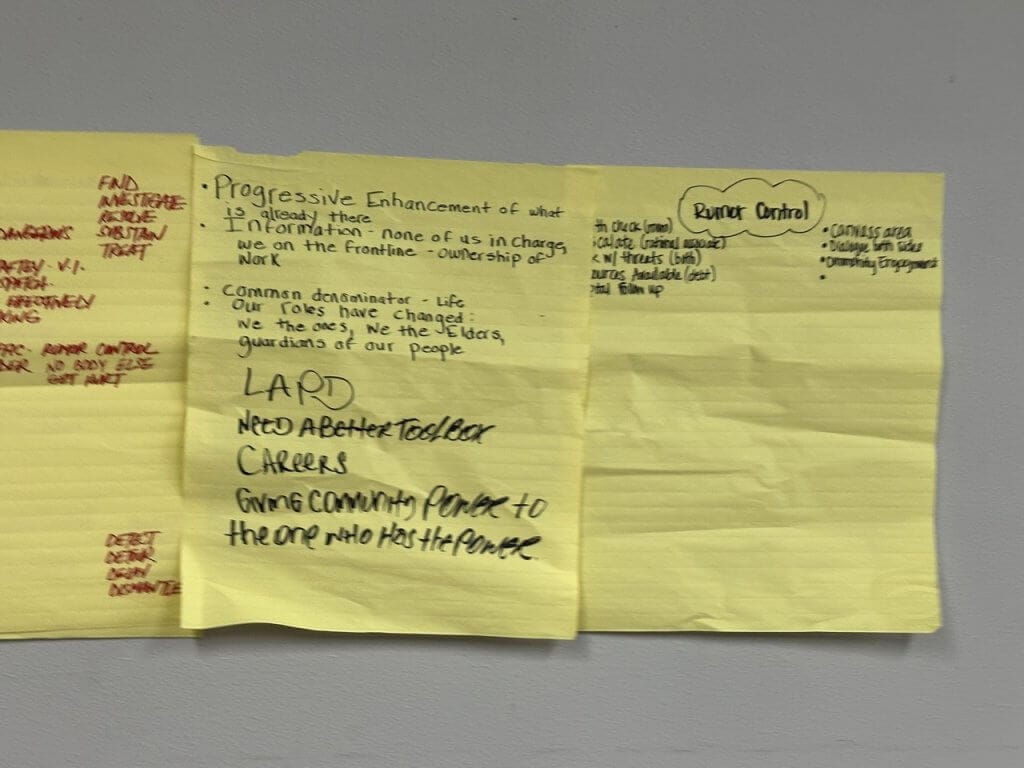 FIND
INVESTIGATE
RESOLVE
DANGEROUS SUBSTAIN
TREAT
V.I.
EFFECTIVELY
KING
RUMOR CONTROL
NO BODY ELSE
GET HURT
DETECT
DETOUR
DELAY
DISMANTLE
• Progressive Enhancement of what
is already there
• Information - none of us in charge,
we on the frontline - ownership of
work
• Common denominator - Life
• Our roles have changed:
we the ones, we the Elders,
guardians of our people
LAPD
NEED A Better TOOLBOX
CAREERS
Giving Community Power to
the one who Has the Power.
Rumor Control
th check (mom)
calate (rational associate)
k w/ threats (both)
ources Available (debt)
ital follow up
• Canvass area
• Dialogue both sides
• Community Engagement
•